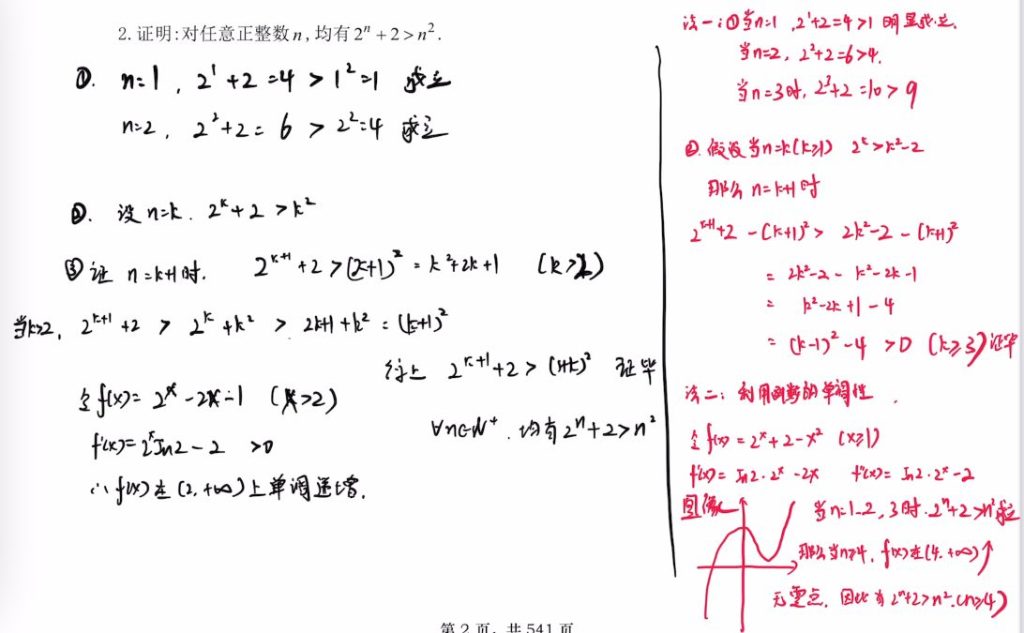 2. 证明:对任意正整数n,均有2ⁿ+2>n².
①. n=1, 2¹+2=4>1²=1 成立
n=2, 2²+2=6>2²=4 成立
②. 设n=k. 2ᵏ+2>k²
③证 n=k+1时. 2ᵏ⁺¹+2>(k+1)²=k²+2k+1 (k>2)
当k>2, 2ᵏ⁺¹+2 > 2ᵏ+k² > 2k+1+k²=(k+1)²
综上 2ᵏ⁺¹+2>(1+k)² 证毕
令f(x)=2ˣ-2x-1 (x>2)
∀n∈N⁺.均有2ⁿ+2>n²
f'(x)=2ˣln2-2 >0
∴f(x)在(2,+∞)上单调递增.
法一:①当n=1, 2¹+2=4>1 明显成立.
当n=2, 2²+2=6>4.
当n=3时, 2³+2=10>9
②假设当n=k(k≥1) 2ᵏ>k²-2
那么n=k+1时
2ᵏ⁺¹+2-(k+1)²> 2k²-2-(k+1)²
= 2k²-2-k²-2k-1
= k²-2k+1-4
= (k-1)²-4>0 (k≥3)证毕
法二:利用函数的单调性.
令f(x)=2ˣ+2-x² (x≥1)
f'(x)=ln2·2ˣ-2x f'(x)=ln2·2ˣ-2
图像
当n=1.2,3时.2ⁿ+2>n²成立
那么当n≥4, f(x)在(4.+∞)↑
无零点.因此有2ⁿ+2>n².(n≥4)
第 2 页, 共 541 页